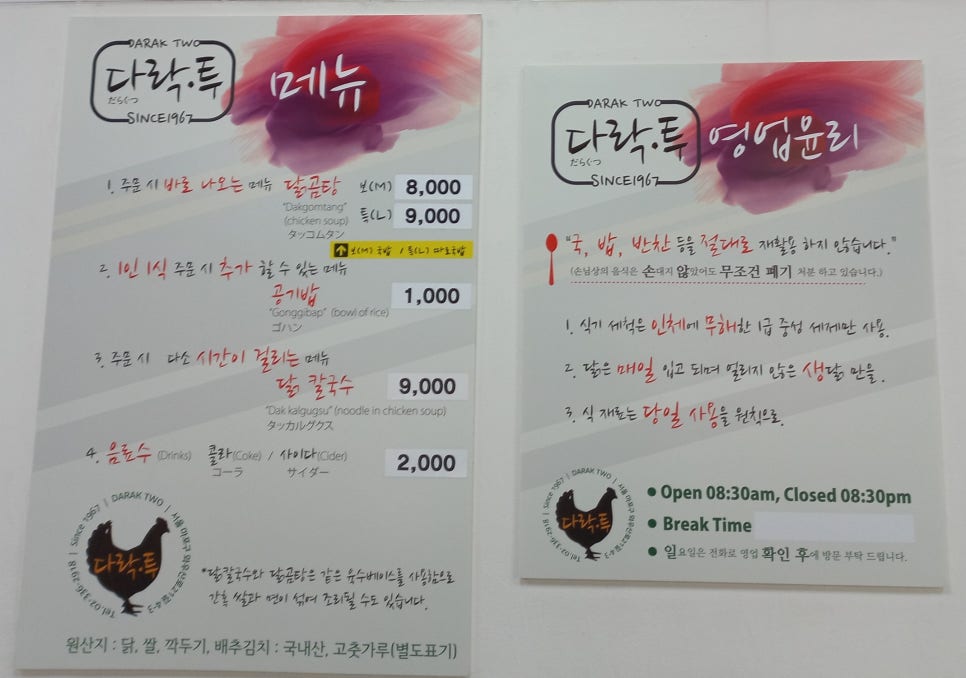 DARAK TWO
다락·투
だらくつ
SINCE1967
메뉴
1. 주문 시 바로 나오는 메뉴 닭곰탕 보(M) 8,000
"Dakgomtang" 특(L) 9,000
(chicken soup)
タッコムタン
보(M) 국밥 / 특(L) 따로국밥
2. 1인 1식 주문 시 추가 할 수 있는 메뉴
공기밥 1,000
"Gonggibap" (bowl of rice)
ゴハン
3. 주문 시 다소 시간이 걸리는 메뉴
닭 칼국수 9,000
"Dak kalgugsu" (noodle in chicken soup)
タッカルグクス
4. 음료수 (Drinks) 콜라(Coke) / 사이다(Cider) 2,000
コーラ サイダー
Since 1967 | DARAK TWO | 서울 마포구 와우산로21길 4-3
Tel.02-336-2918
다락·투
*닭칼국수와 닭곰탕은 같은 육수베이스를 사용함으로
간혹 쌀과 면이 섞여 조리될 수도 있습니다.
원산지 : 닭, 쌀, 깍두기, 배추김치 : 국내산, 고춧가루(별도표기)
DARAK TWO
다락·투
だらくつ
SINCE1967
영업윤리
"국, 밥, 반찬 등을 절대로 재활용 하지 않습니다."
(손님상의 음식은 손대지 않았어도 무조건 폐기 처분 하고 있습니다.)
1. 식기 세척은 인체에 무해한 1급 중성 세제만 사용.
2. 닭은 매일 입고 되며 얼리지 않은 생닭 만을.
3. 식 재료는 당일 사용을 원칙으로.
Since 1967 | DARAK TWO | 서울 마포구 와우산로21길 4-3
Tel.02-336-2918
다락·투
• Open 08:30am, Closed 08:30pm
• Break Time
• 일요일은 전화로 영업 확인 후에 방문 부탁 드립니다.